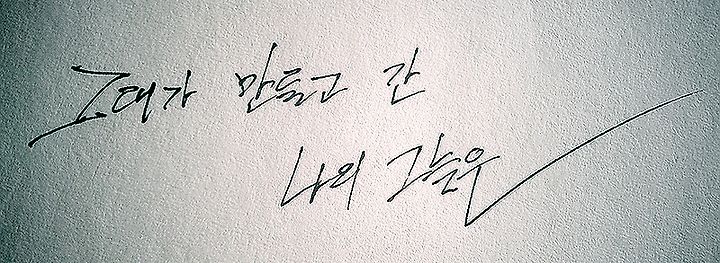 그대가 만들고 간
나의 그늘은